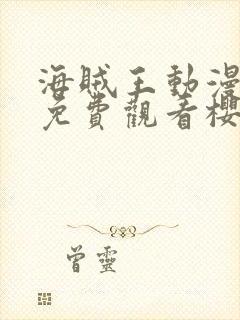 海賊王動漫
免費觀看櫻
曾靈